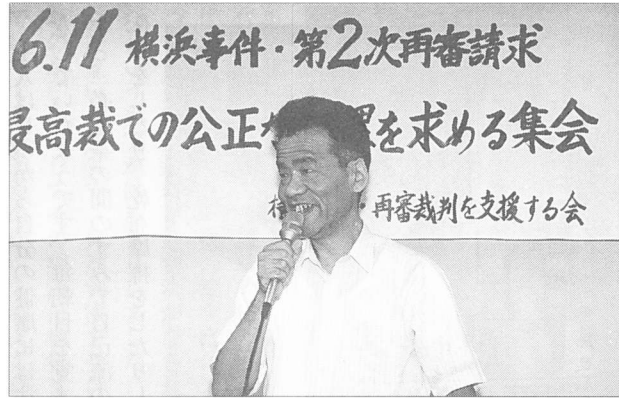 6.11 横浜事件・第2次再審請求
最高裁での公正な 理を求める集会
横 ・再審裁判を支援する会